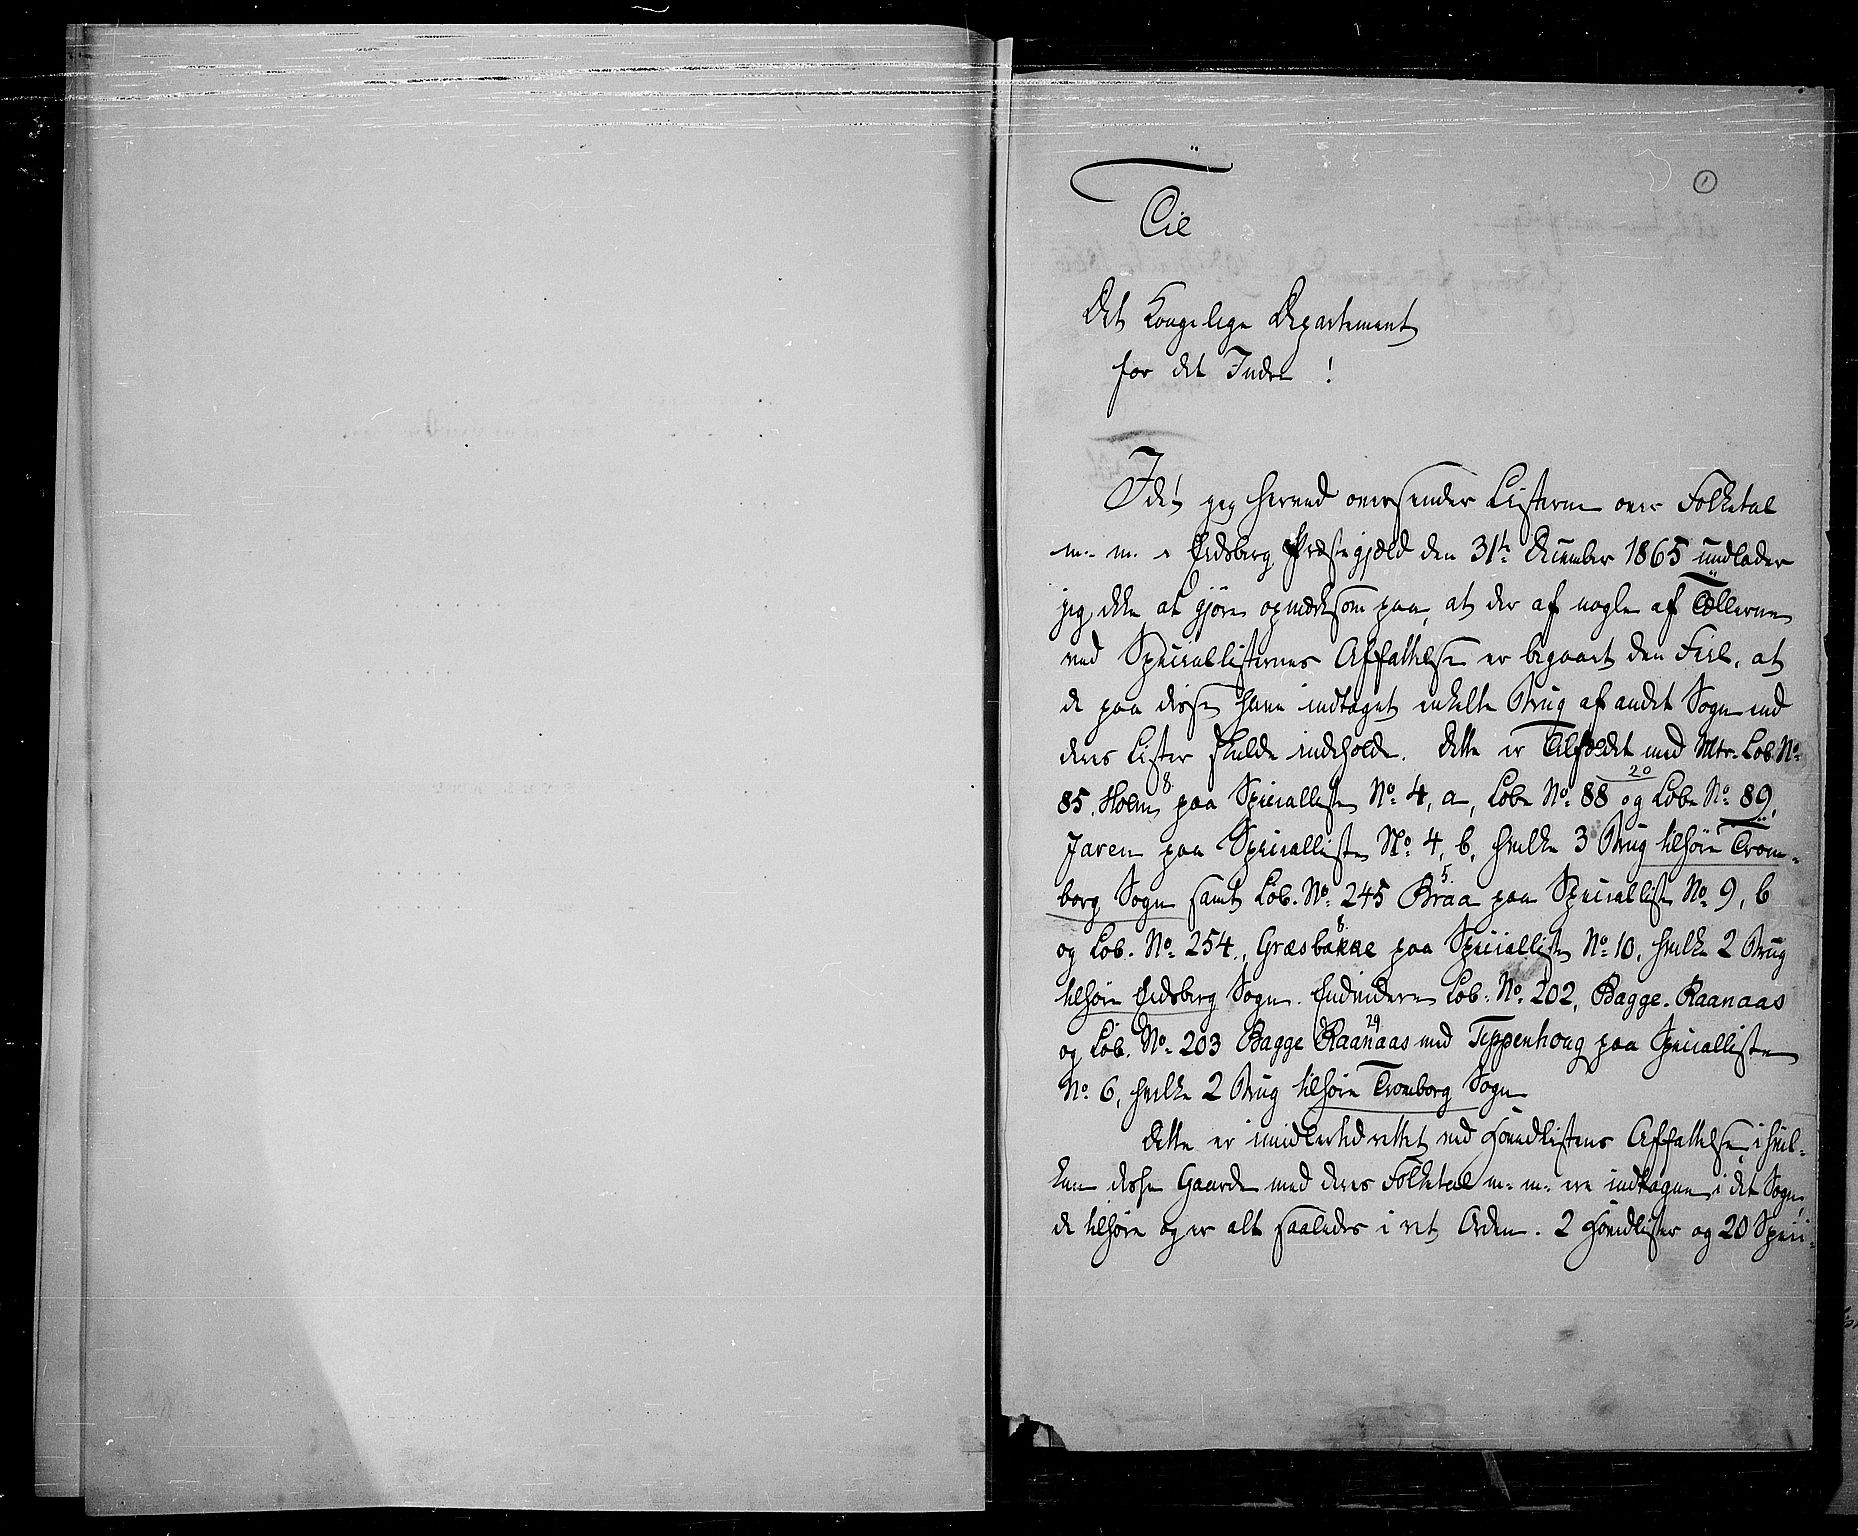 1
Til
Det Kongelige Departement
for det Indre !
Idet jeg herved oversender Listerne over Folketal
m. m. i Eidsberg Præstegjæld den 31te December 1865 undlader
jeg ikke at gjøre opmærksom paa, at der af nogle af Tællerne
ved Speciallisternes Affattelse er begaaet den Feil, at
de paa disse have indtaget enkelte Brug af andet Sogn end
deres Lister skulde indeholde. Dette er Tilfældet med Mtr. Lob. No.
85, Holm, paa Specialliste No. 4, a, Löbe No. 88 og Löbe No. 89,
Jaren paa Specialliste No. 4, b, hvilke 3 Brug tilhøre Tröm-
borg Sogn samt Löb. No. 245 Braa paa Specialliste No. 9, b
og Löb. No. 254, Græsbakke paa Specialliste No. 10, hvilke 2 Brug
tilhøre Eidsberg Sogn. Endvidere Löb. No. 202, Bagge-Raanaas
og Löb. No. 203 Bagge Raanaas med Teppenhoug paa Speciallisten
No. 6, hvilke 2 Brug tilhøre Trömborg Sogn
Dette er imidlertid rettet ved Hovedlistens Affattelse, i hvil-
ken disse Gaarde med deres Folketal m. m. ere indtagne i det Sogn,
de tilhøre og er alt saaledes i ret Orden. 2 Hovedlister og 20 Speci-